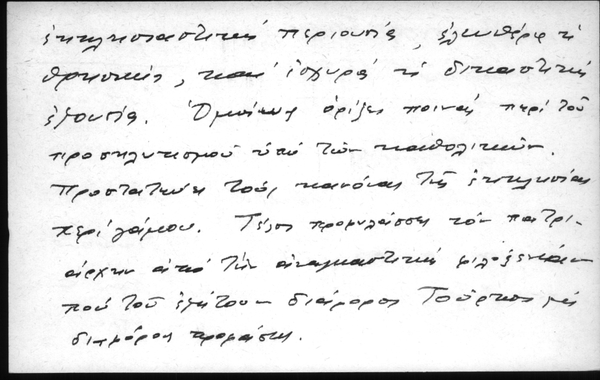 ἐκκλησιαστική περιουσία, ἐλευθέρα ἡ
θρησκεία, καί ἰσχυρά ἡ δικαστική
ἐξουσία. Ὁμοίως ὁρίζει ποινάς περί τοῦ
προσηλυτισμοῦ ὑπό τῶν καθολικῶν.
Προστατεύει τούς κανόνας τῆς ἐκκλησίας
περί γάμου. Τέλος προφυλάσσει τόν πατρι-
άρχην ἀπό τήν ἀναγκαστική φιλοξενίαν
πού τοῦ ἐζήτουν διάφοροι Τοῦρκοι μέ
διαφόρους προφάσεις.